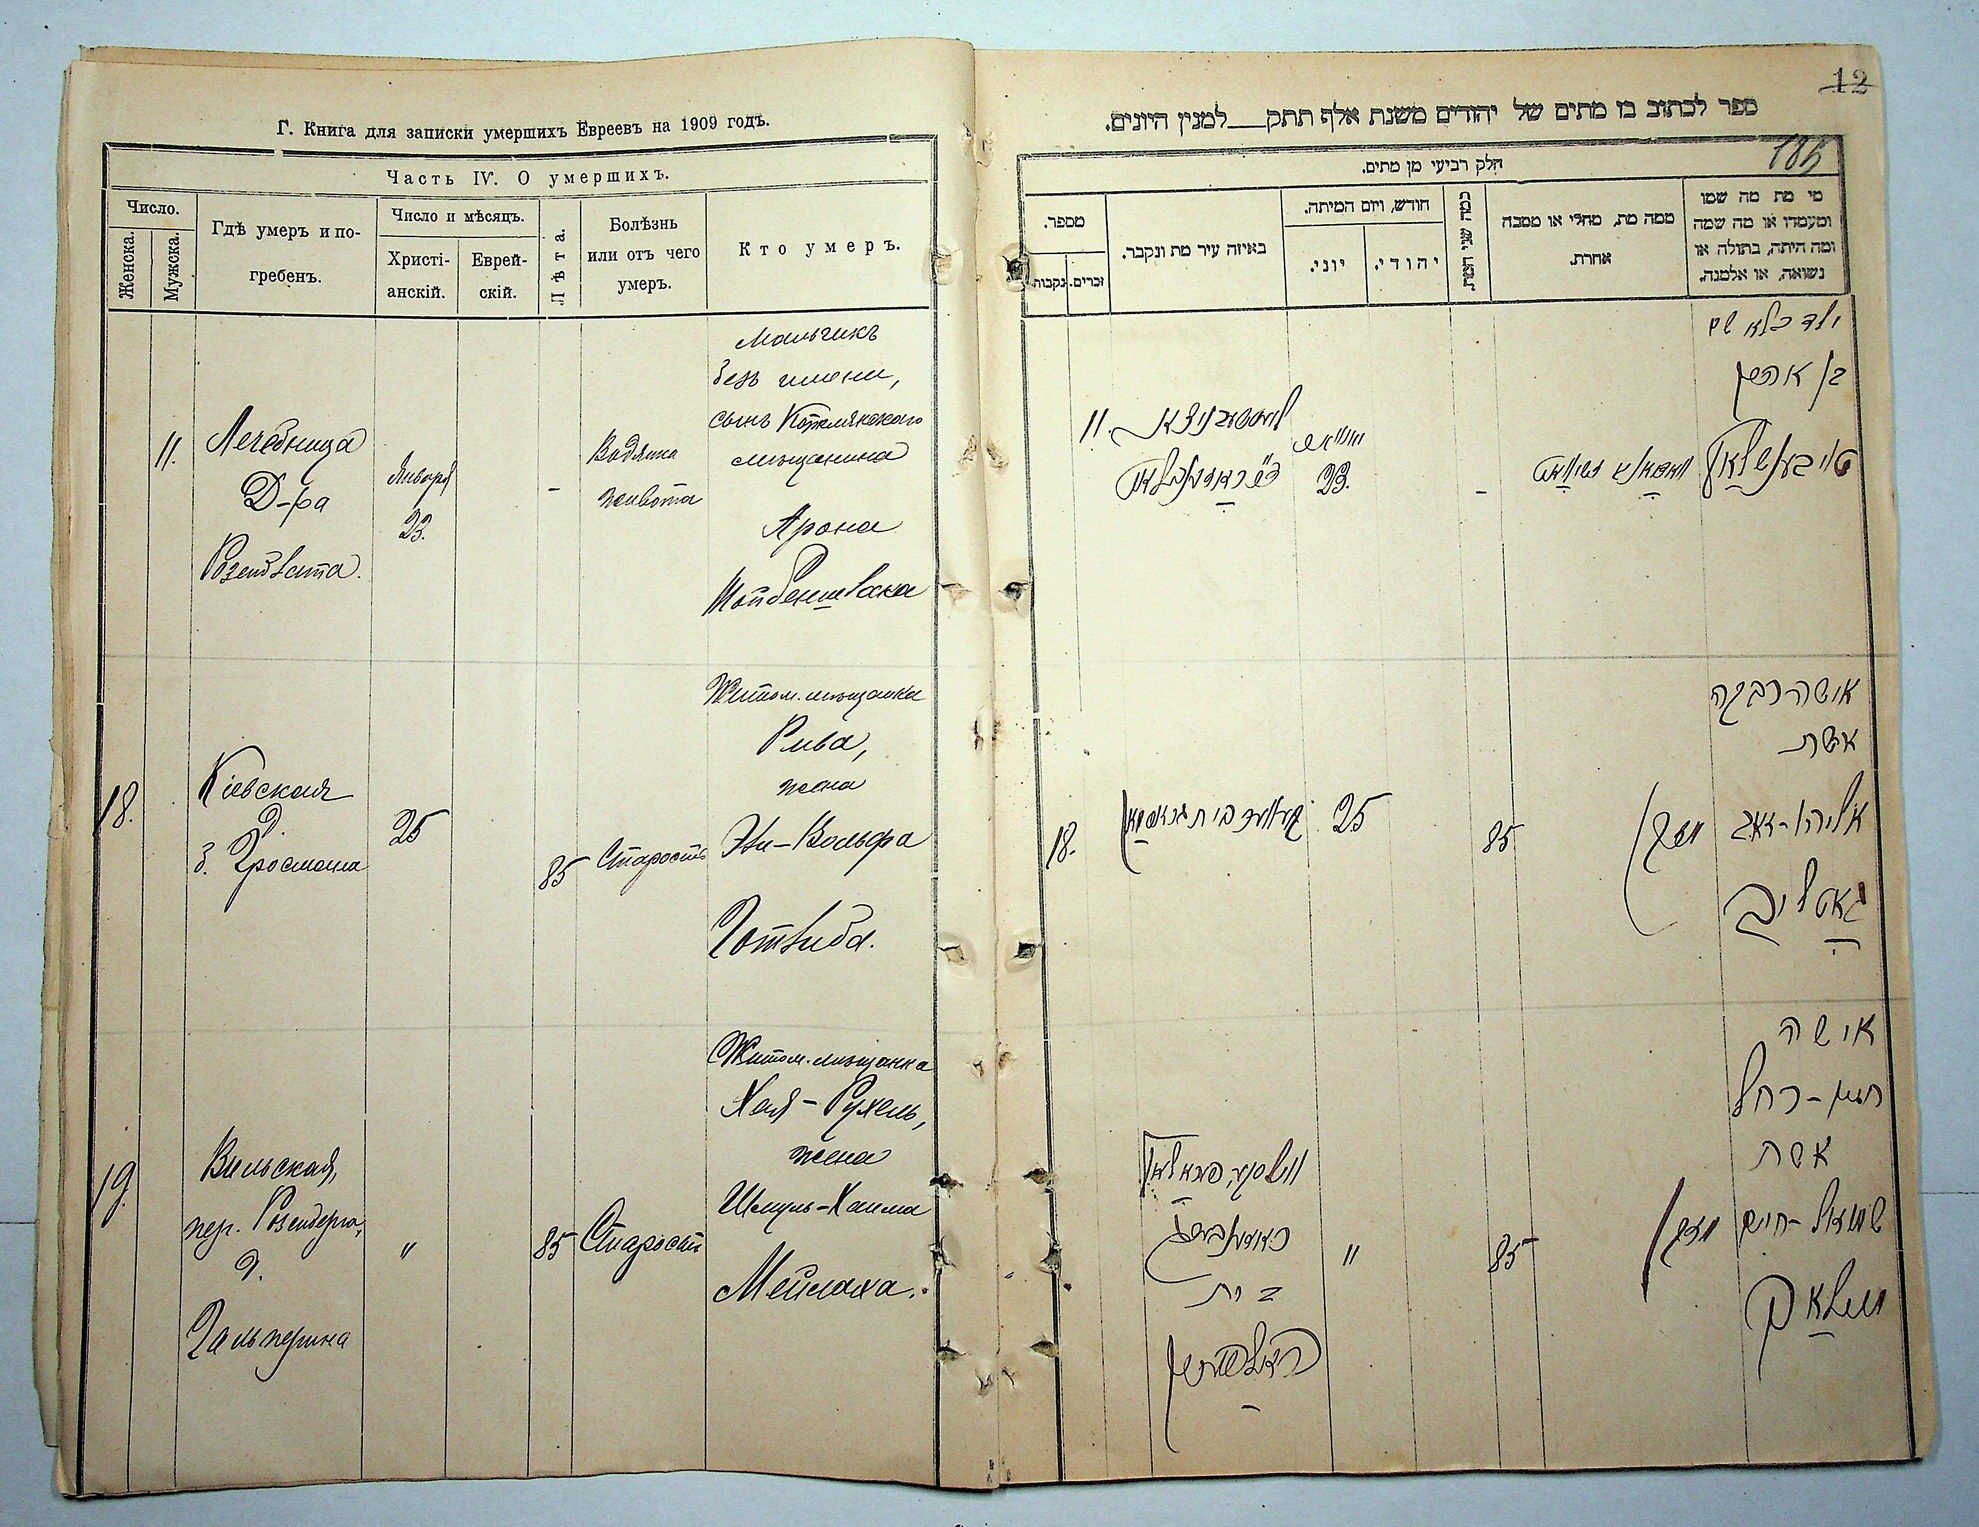 Г. Книга для записки умершихъ Евреевъ на 1909 годъ.
Часть IV. О умершихъ.
Число.
Женска.
Мужска.
Гдѣ умеръ и по-
гребенъ.
Число и мѣсяцъ.
Христі-
анскій.
Еврей-
скій.
Лѣта.
Болѣзнь
или отъ чего
умеръ.
Кто умеръ.
11.
Лечебница
Д-ра
Розенблата.
Января
23.
-
Водянка
живота
Мальчикъ
безъ имени,
сынъ
мѣщанина
Арона
18.
Кіевская
д. Гросмана
25
85
Старость
Житом. мѣщанка
Рива,
жена
Эли-Вольфа
Готлиба.
19.
Вильская,
пер. Розенберга,
д.
Гальперина
"
85
Старость
Житом. мѣщанка
Хая-Рухель,
жена
Шмуль-Хаима
Мейлаха.
12
ספר לכתוב בו מתים של יהודים משנת אלף תתק___למנין היונים.
185
חלק רביעי מן מתים.
מי מת מה שמו
ומעמדו או מה שמה
ומה היתה, בתולה או
נשואה, או אלמנה.
ממה מת, מחלי או מסבה
אחרת.
כמה שני המת.
חודש, ויום המיתה.
יהודי.
יוני.
באיזה עיר מת ונקבר.
מספר.
זכרים.
נקבות.
ילד בלא שם
בן אהרן
-
23.
11.
אישה רבקה
אשת
אליהו-זאב
גאטליב
זקן
85
25
בית גראסמאן
18.
אישה
חיה-רחל
אשת
שמואל-חיים
מיילאך
זקן
85
"
ראזענבערג
בית
האלפערין